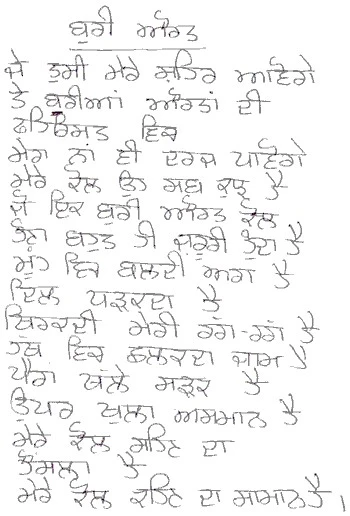 ਬੁਰੀ ਔਰਤ
ਜੇ ਤੁਸੀ ਮੇਰੇ ਸ਼ਹਿਰ ਆਵੋਗੇ
ਤੇ ਬਰੀਆਂ ਔਰਤਾਂ ਦੀ
ਫਹਿਰਿਸਤ ਵਿਚ
ਮੇਰਾ ਨਾਂ ਵੀ ਦਰਜ ਪਾਵੋਗੇ
ਮੇਰੇ ਕੋਲ ਉਹ ਸਭ ਕੁਝ ਹੈ
ਜੋ ਇਕ ਬੁਰੀ ਔਰਤ ਕੋਲ
ਹੋਣਾ ਬਹੁਤ ਹੀ ਜ਼ਰੂਰੀ ਹੁੰਦਾ ਹੈ
ਮੂੰਹ ਵਿਚ ਬਲਦੀ ਅਗ ਹੈ
ਦਿਲ ਧੜਕਦਾ ਹੈ
ਥਿਰਕਦੀ ਮੇਰੀ ਰਗ-ਰਗ ਹੈ
ਹੱਥ ਵਿਚ ਛਲਕਦਾ ਜਾਮ ਹੈ
ਪੈਰਾਂ ਥੱਲੇ ਸੜਕ ਹੈ
ਉਪਰ ਖੁਲਾ ਅਸਮਾਨ ਹੈ
ਮੇਰੇ ਕੋਲ ਸਹਿਣ ਦਾ
ਹੌਸਲਾ ਹੈ
ਮੇਰੇ ਕੋਲ ਕਹਿਣ ਦਾ ਸਾਮਾਨ ਹੈ।